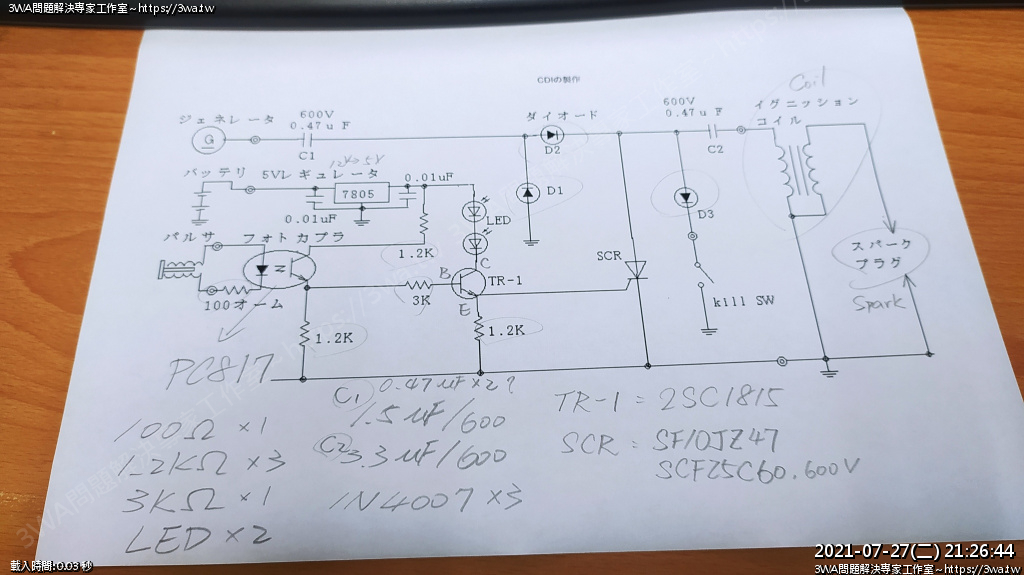 3WA問題解決專家工作室~https://3wa.tw
CDIの制作
Coil
ジェネレータ
600V
0.47uF
ダイオード
600V
0.47uF
イグニッション
コイル
G
C1
D2
C2
バッテリ
5Vレギュレータ
12V→5V
7805
0.01uF
0.01uF
D1
LED
D3
パルサ
フォトカプラ
1.2K
C
B
TR-1
SCR
スパーク
プラグ
100オーム
3K
E
kill SW
Spark
1.2K
1.2K
PC817
C1 0.47uF×2?
1.5uF/600
C2 3.3uF/600
1N4007 ×3
TR-1 = 2SC1815
SCR : SF10JZ47
SCF25C60.600V
100Ω ×1
1.2KΩ ×3
3KΩ ×1
LED ×2
載入時間:0.03 秒
2021-07-27(二) 21:26:44
3WA問題解決專家工作室~https://3wa.tw